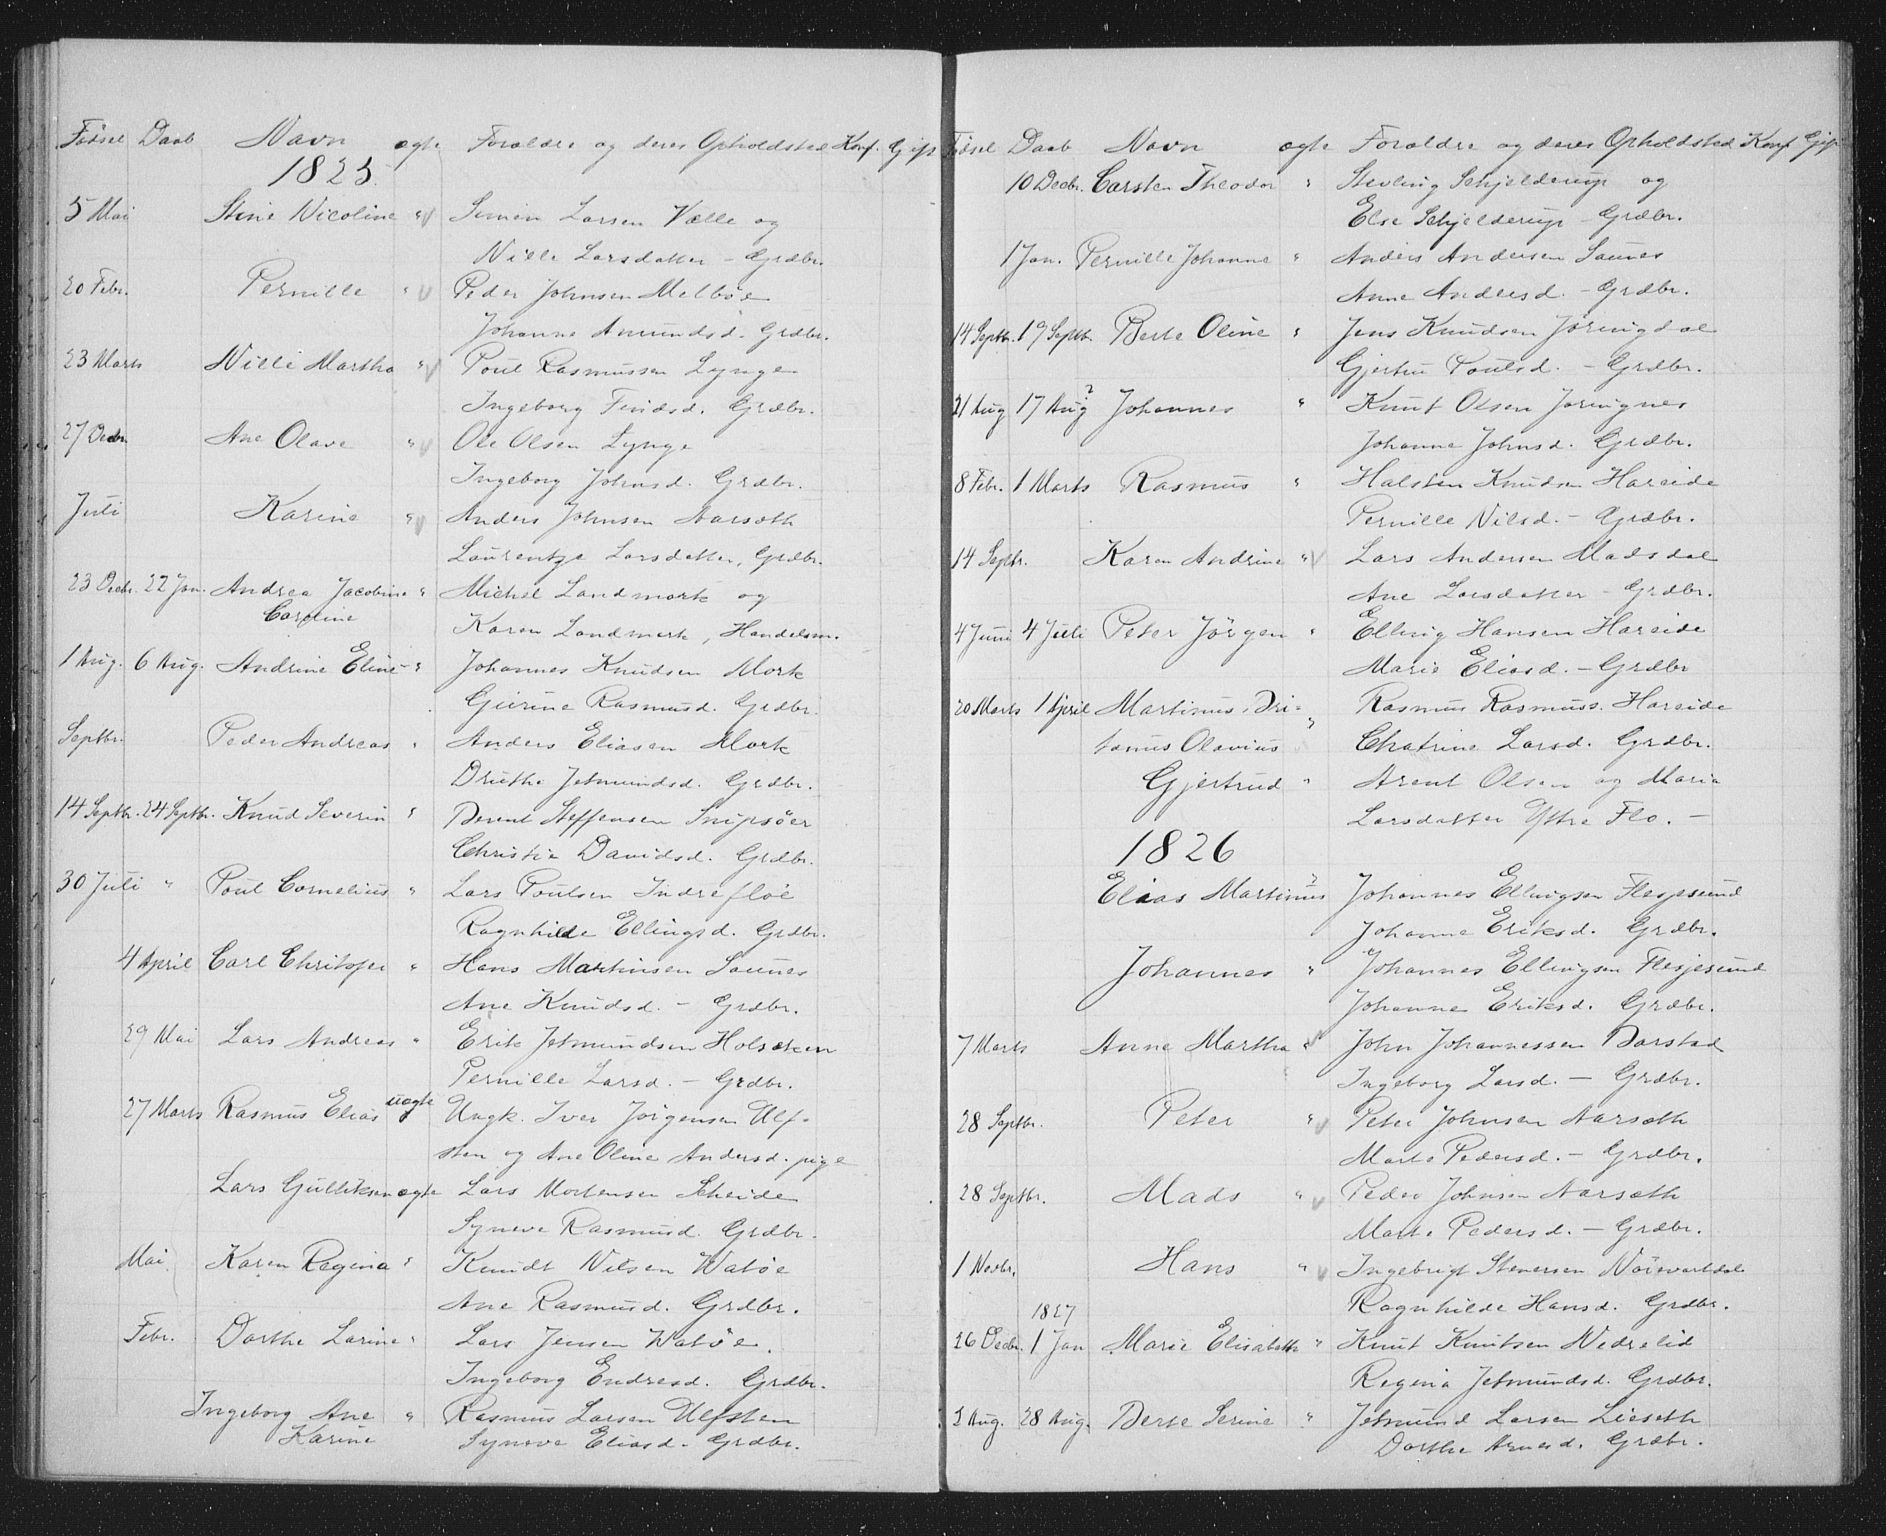 Fødsel Daab Navn ægte Forældre og deres Opholdsted Konf. Gift
1825.
5 Mai Stine Nicoline " Simon Larsen Vælle og
Nille Larsdatter - Grdbr.
20 Febr. Pernille " Peder Johnsen Melbøe
Johanne Amundsd. Grdbr.
23 Marts Nille Martha " Poul Rasmussen Lynge
Ingeborg Findsd. Grdbr.
27 Decbr Ane Olave " Ole Olsen Lynge
Ingeborg Johnsd. Grdbr.
Juli Karine " Anders Johnsen Aarsæth
Laurentze Larsdatter, Grdbr.
23 Decbr. 22 Jan. Andrea Jacobine " Michel Landmark og
Caroline Karen Landmark, Handelsm.
1 Aug. 6 Aug. Andrine Eline " Johannes Knudsen Mork
Gurine Rasmusd. Grdbr.
Septbr. Peder Andreas " Anders Eliasen Mork
Druthe Jetmundsd. Grdbr.
14 Septbr. 24 Septbr. Knud Severin " Berent Steffensen Snipsøer
Christie Davidsd. Grdbr.
30 Juli " Poul Cornelius " Lars Poulsen Indrefloe
Ragnhilde Ellingsd. Grdbr.
4 April Carl Christofer " Hans Martinsen Saunes
Ane Knudsd. - Grdbr.
29 Mai Lars Andreas " Erik Jetmundsen Holsæken
Pernille Larsd. - Grdbr.
27 Marts Rasmus Elias uægte Ungk. Iver Jørgensen Ulf-
sten og Ane Oline Andersd. pige
Lars Gulliksen ægte Lars Mortensen Skeide
Syneve Rasmusd. Grdbr.
Mai Karen Regina " Knudt Nilsen Watøe
Ane Rasmusd. Grdbr.
Febr. Dorthe Larine " Lars Jensen Watøe.
Ingeborg Endresd. Grdbr.
Ingeborg Ane " Rasmus Larsen Ulfsten
Karine Syneve Eliasd. Grdbr.
Fødsel Daab Navn ægte Forældre og deres Opholdsted Konf Gift
10 Decbr. Carsten Theodor " Stevling Schjelderup og
Else Schjelderup - Grdbr.
1 Jan. Pernille Johanne " Anders Andersen Saunes
Anne Andersd. - Grdbr.
14 Septbr. 19 Septbr. Berte Oline " Jens Knudsen Jøringdal
Gjertru Poulsd. - Grdbr.
21 Aug 17 Aug ? Johannes " Knut Olsen Jøringnes
Johanne Johnsd. Grdbr.
8 Febr. 1 Marts Rasmus " Halsten Knudsen Hareide
Pernille Nilsd. - Grdbr.
14 Septbr. Karen Andrine " Lars Andersen Madsdal
Ane Larsdatter - Grdbr.
4 Juni 4 Juli Peter Jörgen " Elling Hansen Hareide
Marie Eliasd. - Grdbr
20 Marts 1 April Martinus Dri- " Rasmus Rasmuss. Hareide
tanus Olavius Chatrine Larsd. Grdbr.
Gjertrud " Arent Olsen og Maria
Larsdatter Yttre Flo. -
1826
Elias Martinus ? Johannes Ellingsen Flesjesund
Johanne Eriksd. Grdbr.
Johannes " Johannes Ellingsen Flesjesund
Johanne Eriksd. Grdbr.
7 Marts Anne Martha " John Johannessen Barstad
Ingeborg Larsd. - Grdbr.
28 Septbr. Peter " Peter Johnsen Aarsæth
Marte Pedersd. - Grdbr.
28 Septbr. Mads " Peder Johnsen Aarsæth
Marte Pedersd. - Grdbr.
1 Novbr. Hans " Ingebrigt Stenersen Nöievartdal
1827 Ragnhilde Hansd. Grdbr.
26 Decbr. 1 Jan Marie Elisabeth " Knut Knutsen Nedrelid
Regina Jetmundsd. Grdbr.
2 Aug. 28 Aug. Berte Serine " Jetmund Larsen Lieseth
Dorthe Arnesd. Grdbr.